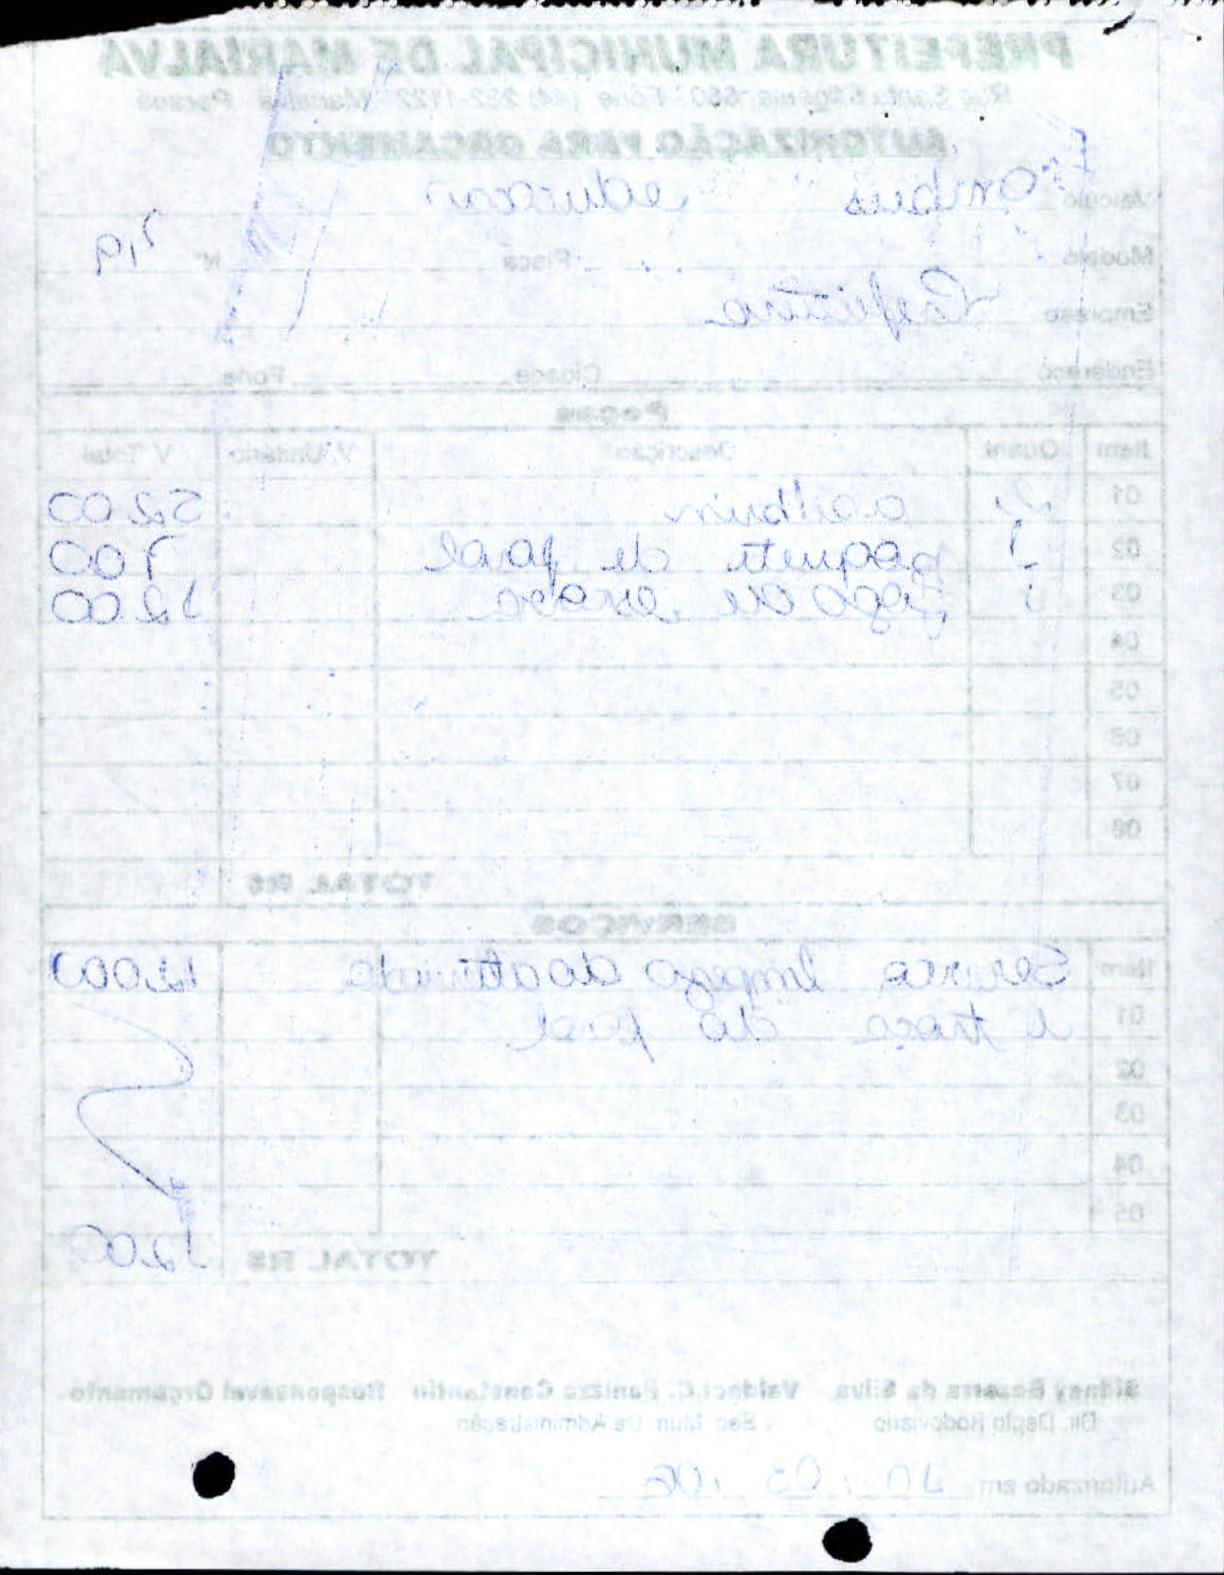 PREFEITURA MUNICIPAL DE MARIALVA
Rua Santa Efigênia, 680 - Fone (44) 232-1122 - Marialva - Paraná
AUTORIZAÇÃO PARA ORÇAMENTO
Veículo onibus educacao
Modelo Placa Nº
Empresa Prefeitura
Endereço Cidade Fone
Peças
Item Quant. Descrição V. Unitário V. Total
01 2 52.00
02 1 de farol 7.00
03 1 jogo de escova 12.00
04
05
06
07
08
TOTAL R$
SERVIÇOS
Item Servico limpeza do 12.00
01 e troca do farol
02
03
04
05
TOTAL R$ 12.00
Sidney Bezerra da Silva Valdeci C. Constantin Responsável Orçamento
Dir. Depto Rodoviario Sec. Mun. De Administração
Autorizado em 10.03.06